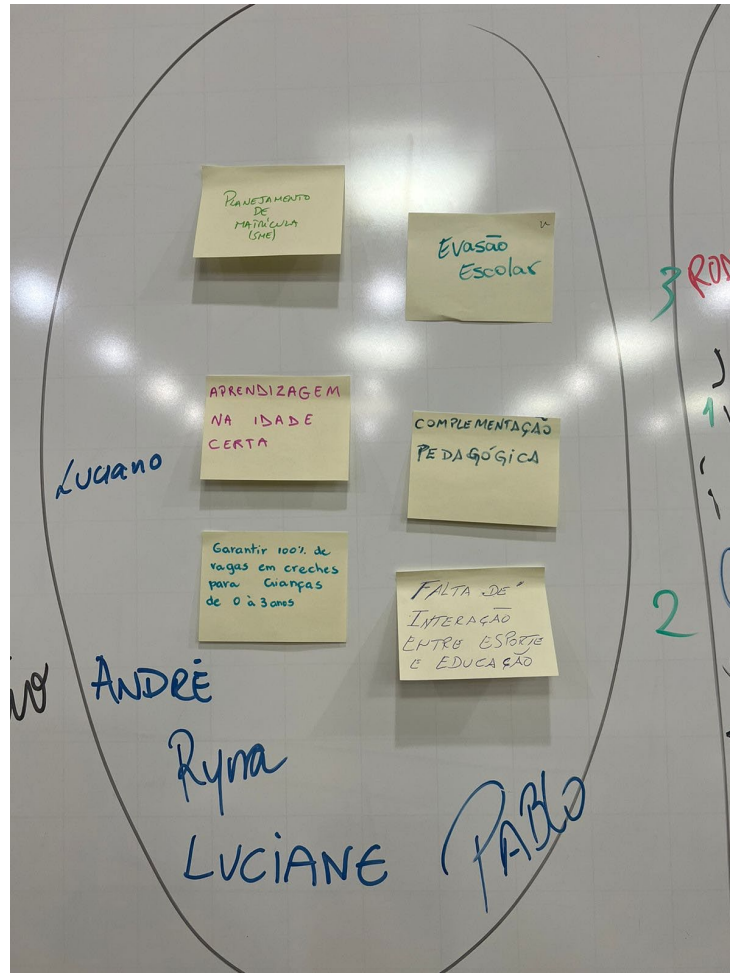 PLANEJAMENTO
DE
MATRÍCULA
(SME)
Evasão
Escolar
APRENDIZAGEM
NA IDADE
CERTA
COMPLEMENTAÇÃO
PEDAGÓGICA
Luciano
Garantir 100% de
vagas em creches
para Crianças
de 0 à 3 anos
FALTA DE
INTERAÇÃO
ENTRE ESPORTE
E EDUCAÇÃO
ANDRÉ
Ryna
LUCIANE
PABLO
3
1
2